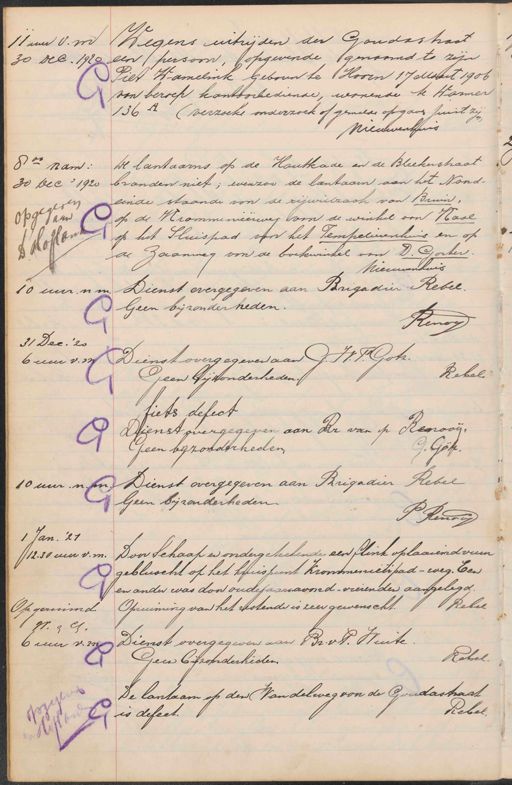 11 uur v.m
30 Dec. 1920
Wegens uitrijden der Goudastraat
een persoon, opgevende genaamd te zijn
Piet Hamelink Geboren te Hoorn 17 Maart 1906
van beroep kantoorbediende, wonende te Wormer
136 A (verzoeke onderzoek of gemelde opgaaf juist zij)
Nieuwenhuis
8 ure nam:
30 Dec: 1920
Opgegeven
aan
D Hofland
de lantaarns op de Houtkade en de Bleekerstraat
branden niet; evenzoo de lantaarn aan het Noord-
einde staande van de rijwielzaak van Bruin,
op de Krommenieuweg voor de winkel van Klase
op het Sluispad van het Tempelierenhuis en op
de Zaanweg van de boekwinkel van D. Gorter.
Nieuwenhuis
10 uur n.m
Dienst overgegeven aan Brigadier Rebel.
Geen bijzonderheden.
Renooy
31 Dec. '20
6 uur v.m
Dienst overgegeven aan J. W. F. Gotz.
Geen bijzonderheden
Rebel.
fiets defect
Dienst overgegeven aan Br van p. Renooij.
Geen bijzonderheden
G. Götz.
10 uur n.m
Dienst overgegeven aan Brigadier Rebel
Geen bijzonderheden.
P. Renooy
1 Jan. '21
12.30 uur v.m.
Door Schaap en ondergeteekende een flink oplaaiend vuur
gebluscht op het kruispunt Krommenietrpad - weg. Een
en ander was door oudejaarsavond-vierender aangelegd.
Opruiming van het restende is zeer gewenscht.
Rebel
Opgeruimd
6 uur v.m
Dienst overgegeven aan Br. v. P. Kuik.
Geen bijzonderheden.
Rebel.
opgegeven
aan Hofland
De lantaarn op den Wandelweg van de Goudastraat
is defect.
Rebel.